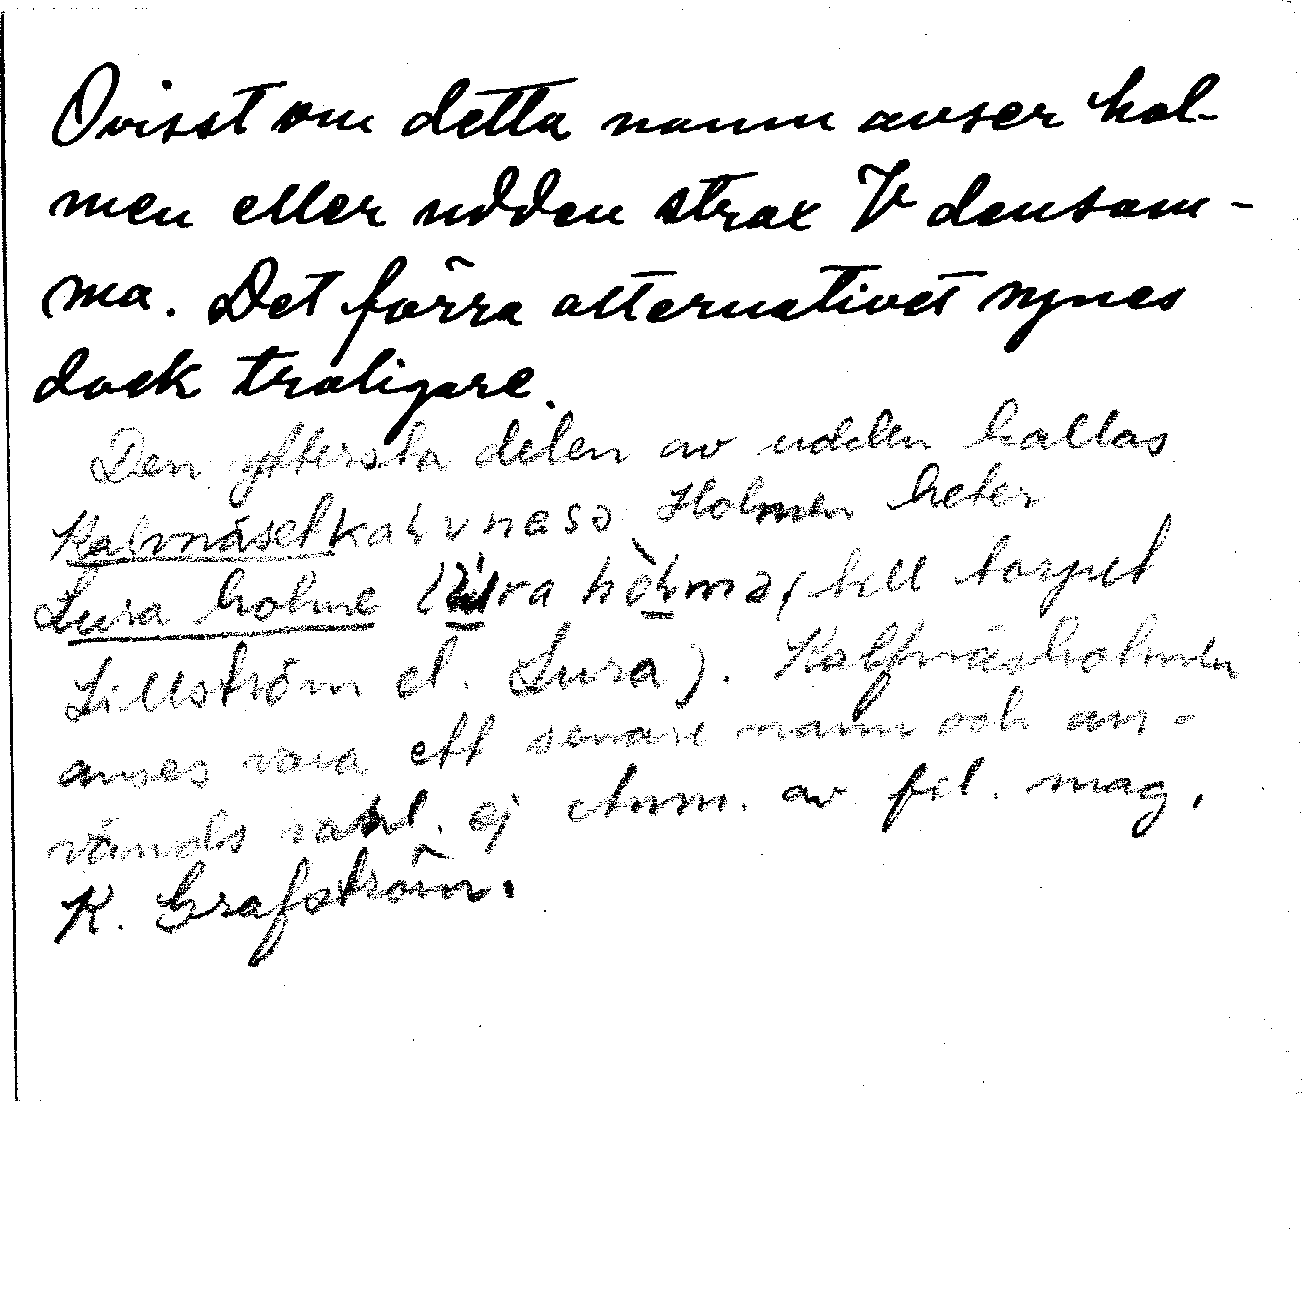 Ovisst om detta namn avser hol-
men eller udden strax V densam-
ma. Det förra alternativet synes
dock troligare.
Den yttersta delen av udden kallas
Kalvnäset kaɫvnesə Holmen heter
Lura holme ra hòɫmə, till torpet
Lillström el. Lura). Kalfnäsholmen
anses vara ett senare namn och an-
vänds vanl. ej Anm. av fil. mag.
K. Grafström.